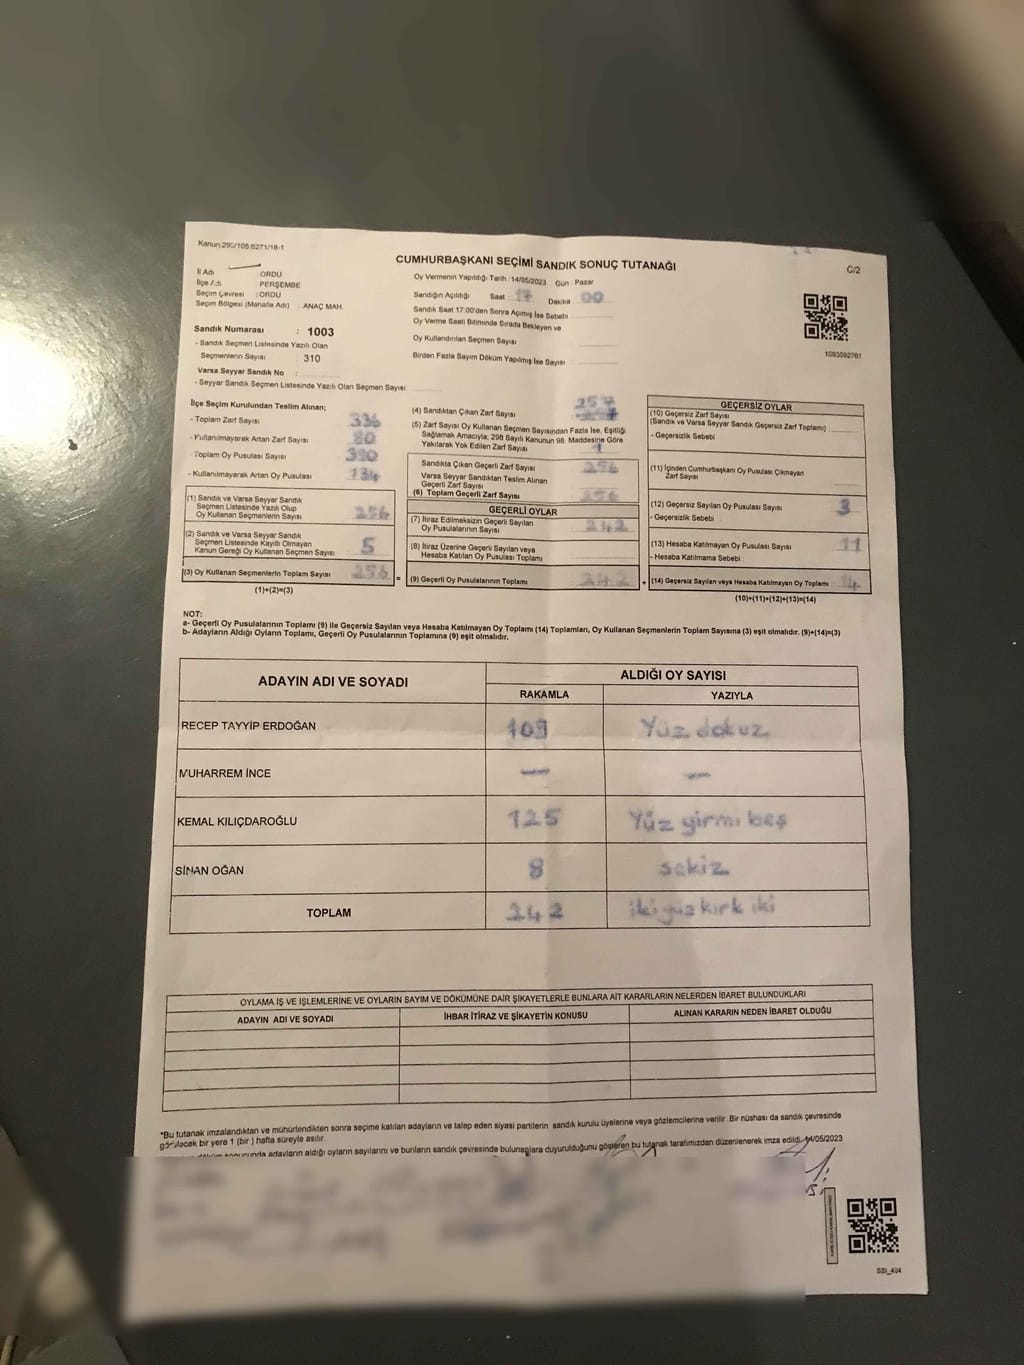 Kanun:290/105:6271/16-1
CUMHURBAŞKANI SEÇİMİ SANDIK SONUÇ TUTANAĞI
C/2
İl Adı ORDU
İlçe Adı PERŞEMBE
Seçim Çevresi : ORDU
Seçim Bölgesi (Mahalle Adı) : ANAÇ MAH.
Oy Vermenin Yapıldığı Tarih :14/05/2023 Gün : Pazar
Sandığın Açıldığı Saat 17 Dakika 00
Sandık Saat 17:00'den Sonra Açımış İse Sebebi
Oy Verme Saati Bitiminde Sırada Bekleyen ve
Oy Kullandırılan Seçmen Sayısı
Birden Fazla Sayım Döküm Yapılmış İse Sayısı
1093592761
Sandık Numarası : 1003
- Sandık Seçmen Listesinde Yazılı Olan
Seçmenlerin Sayısı 310
Varsa Seyyar Sandık No :
- Seyyar Sandık Seçmen Listesinde Yazılı Olan Seçmen Sayısı
İlçe Seçim Kurulundan Teslim Alınan;
- Toplam Zarf Sayısı 336
- Kullanılmayarak Artan Zarf Sayısı 80
- Toplam Oy Pusulası Sayısı 390
- Kullanılmayarak Artan Oy Pusulası 134
(1) Sandık ve Varsa Seyyar Sandık
Seçmen Listesinde Yazılı Olup
Oy Kullanan Seçmenlerin Sayısı 256
(2) Sandık ve Varsa Seyyar Sandık
Seçmen Listesinde Kayıtlı Olmayan
Kanun Gereği Oy Kullanan Seçmen Sayısı 5
(3) Oy Kullanan Seçmenlerin Toplam Sayısı 256 =
(1)+(2)=(3)
257
(4) Sandıktan Çıkan Zarf Sayısı
(5) Zarf Sayısı Oy Kullanan Seçmen Sayısından Fazla İse, Eşitliği
Sağlamak Amacıyla, 298 Sayılı Kanunun 98. Maddesine Göre
Yakılarak Yok Edilen Zarf Sayısı 1
Sandıkta Çıkan Geçerli Zarf Sayısı 256
Varsa Seyyar Sandıktan Teslim Alınan
Geçerli Zarf Sayısı
(6) Toplam Geçerli Zarf Sayısı 256
GEÇERLİ OYLAR
(7) İtiraz Edilmeksizin Geçerli Sayılan
Oy Pusulalarının Sayısı 242
(8) İtiraz Üzerine Geçerli Sayılan veya
Hesaba Katılan Oy Pusulası Toplamı
(9) Geçerli Oy Pusulalarının Toplamı 242 +
GEÇERSİZ OYLAR
(10) Geçersiz Zarf Sayısı
(Sandık ve Varsa Seyyar Sandık Geçersiz Zarf Toplamı)
- Geçersizlik Sebebi
(11) İçinden Cumhurbaşkanı Oy Pusulası Çıkmayan
Zarf Sayısı
(12) Geçersiz Sayılan Oy Pusulası Sayısı 3
- Geçersizlik Sebebi
(13) Hesaba Katılmayan Oy Pusulası Sayısı 11
- Hesaba Katılmama Sebebi
(14) Geçersiz Sayılan veya Hesaba Katılmayan Oy Toplamı 14
(10)+(11)+(12)+(13)=(14)
NOT:
a- Geçerli Oy Pusulalarının Toplamı (9) ile Geçersiz Sayılan veya Hesaba Katılmayan Oy Toplamı (14) Toplamları, Oy Kullanan Seçmenlerin Toplam Sayısına (3) eşit olmalıdır. (9)+(14)=(3)
b- Adayların Aldığı Oyların Toplamı, Geçerli Oy Pusulalarının Toplamına (9) eşit olmalıdır.
ADAYIN ADI VE SOYADI ALDIĞI OY SAYISI
RAKAMLA YAZIYLA
RECEP TAYYİP ERDOĞAN 109 Yüz dokuz
MUHARREM İNCE — —
KEMAL KILIÇDAROĞLU 125 Yüz yirmi beş
SİNAN OĞAN 8 sekiz
TOPLAM 242 iki yüz kırk iki
OYLAMA İŞ VE İŞLEMLERİNE VE OYLARIN SAYIM VE DÖKÜMÜNE DAİR ŞİKAYETLERLE BUNLARA AİT KARARLARIN NELERDEN İBARET BULUNDUKLARI
ADAYIN ADI VE SOYADI İHBAR İTİRAZ VE ŞİKAYETİN KONUSU ALINAN KARARIN NEDEN İBARET OLDUĞU
*Bu tutanak imzalandıktan ve mühürlendikten sonra seçime katılan adayların ve talep eden siyasi partilerin sandık kurulu üyelerine veya gözlemcilerine verilir. Bir nüshası da sandık çevresinde
görülecek bir yere 1 (bir ) hafta süreyle asılır.
sonucunda adayların aldığı oyların sayılarını ve bunların sandık çevresinde bulunanlara duyurulduğunu gösteren bu tutanak tarafımızdan düzenlenerek imza edildi. 14/05/2023
SSI_404